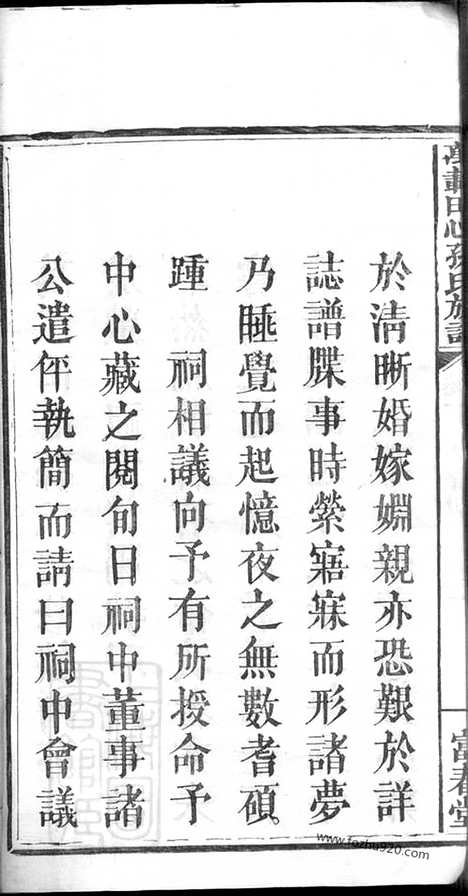 萬載田心孫氏族譜
富春堂
於清晰婚嫁姻親亦恐艱於詳
誌譜牒事時縈寤寐而形諸夢
乃睡覺而起憶夜之無數耆碩
踵 祠相議向予有所授命予
中心藏之閱旬日祠中董事諸
公遣伻執簡而請曰祠中會議
www.fozhu920.com